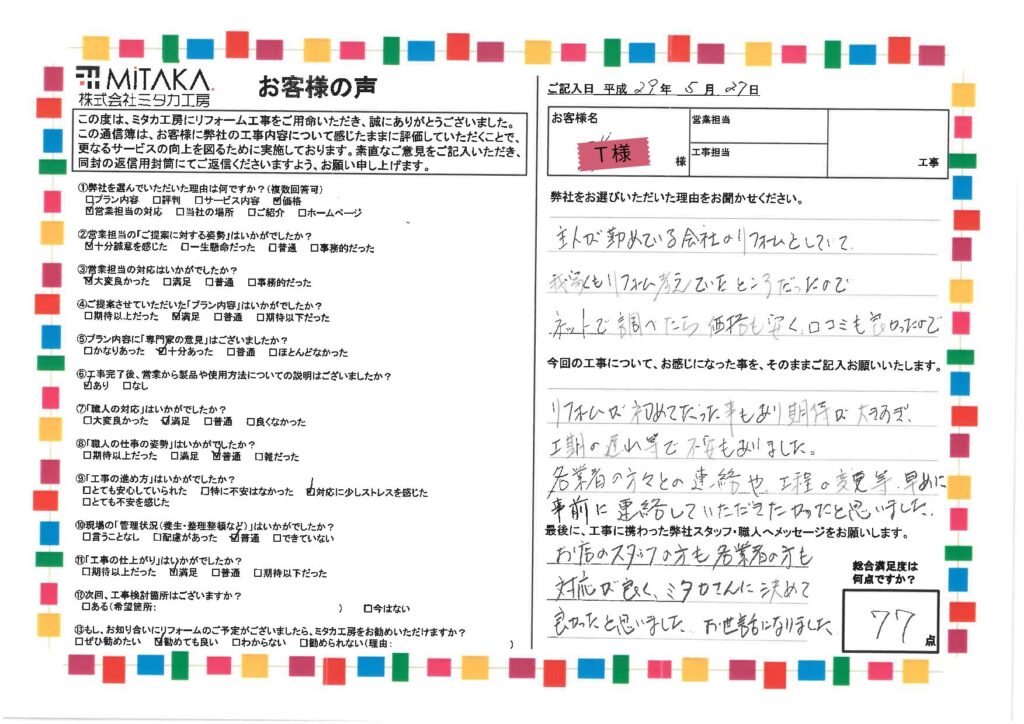 MiTAKA
株式会社ミタカ工房
お客様の声
この度は、ミタカ工房にリフォーム工事をご用命いただき、誠にありがとうございました。
この通信簿は、お客様に弊社の工事内容について感じたままに評価していただくことで、
更なるサービスの向上を図るために実施しております。素直なご意見をご記入いただき、
同封の返信用封筒にてご返信くださいますよう、お願い申し上げます。
①弊社を選んでいただいた理由は何ですか？(複数回答可)
□プラン内容 □評判 □サービス内容 ☑価格
☑営業担当の対応 □当社の場所 □ご紹介 □ホームページ
②営業担当の「ご提案に対する姿勢」はいかがでしたか？
☑十分誠意を感じた □一生懸命だった □普通 □事務的だった
③営業担当の対応はいかがでしたか？
☑大変良かった □満足 □普通 □事務的だった
④ご提案させていただいた「プラン内容」はいかがでしたか？
□期待以上だった ☑満足 □普通 □期待以下だった
⑤プラン内容に「専門家の意見」はございましたか？
□かなりあった ☑十分あった □普通 □ほとんどなかった
⑥工事完了後、営業から製品や使用方法についての説明はございましたか？
☑あり □なし
⑦「職人の対応」はいかがでしたか？
□大変良かった ☑満足 □普通 □良くなかった
⑧「職人の仕事の姿勢」はいかがでしたか？
□期待以上だった □満足 ☑普通 □雑だった
⑨「工事の進め方」はいかがでしたか？
□とても安心していられた □特に不安はなかった ☑対応に少しストレスを感じた
□とても不安を感じた
⑩現場の「管理状況(養生・整理整頓など)」はいかがでしたか？
□言うことなし □配慮があった ☑普通 □できていない
⑪「工事の仕上がり」はいかがでしたか？
□期待以上だった ☑満足 □普通 □期待以下だった
⑫次回、工事検討箇所はございますか？
□ある(希望箇所: ) □今はない
⑬もし、お知り合いにリフォームのご予定がございましたら、ミタカ工房をお勧めいただけますか？
□ぜひ勧めたい ☑勧めても良い □わからない □勧められない(理由: )
ご記入日 平成 29年 5月 27日
お客様名
T様
様
営業担当
工事担当
工事
弊社をお選びいただいた理由をお聞かせください。
主人が勤めている会社のリフォームとしていて、
我家もリフォーム考えていたところだったので
ネットで調べたら価格も安く、口コミも良かったので
今回の工事について、お感じになった事を、そのままご記入お願いいたします。
リフォームが初めてだった事もあり期待が大きすぎ、
工期の遅れ等で不安もありました。
各業者の方々との連絡や、工程の変更等、早めに
事前に連絡していただきたかったと思いました。
最後に、工事に携わった弊社スタッフ・職人へメッセージをお願いします。
お店のスタッフの方も各業者の方も
対応が良く、ミタカさんに決めて
良かったと思いました。お世話になりました
総合満足度は
何点ですか？
77
点